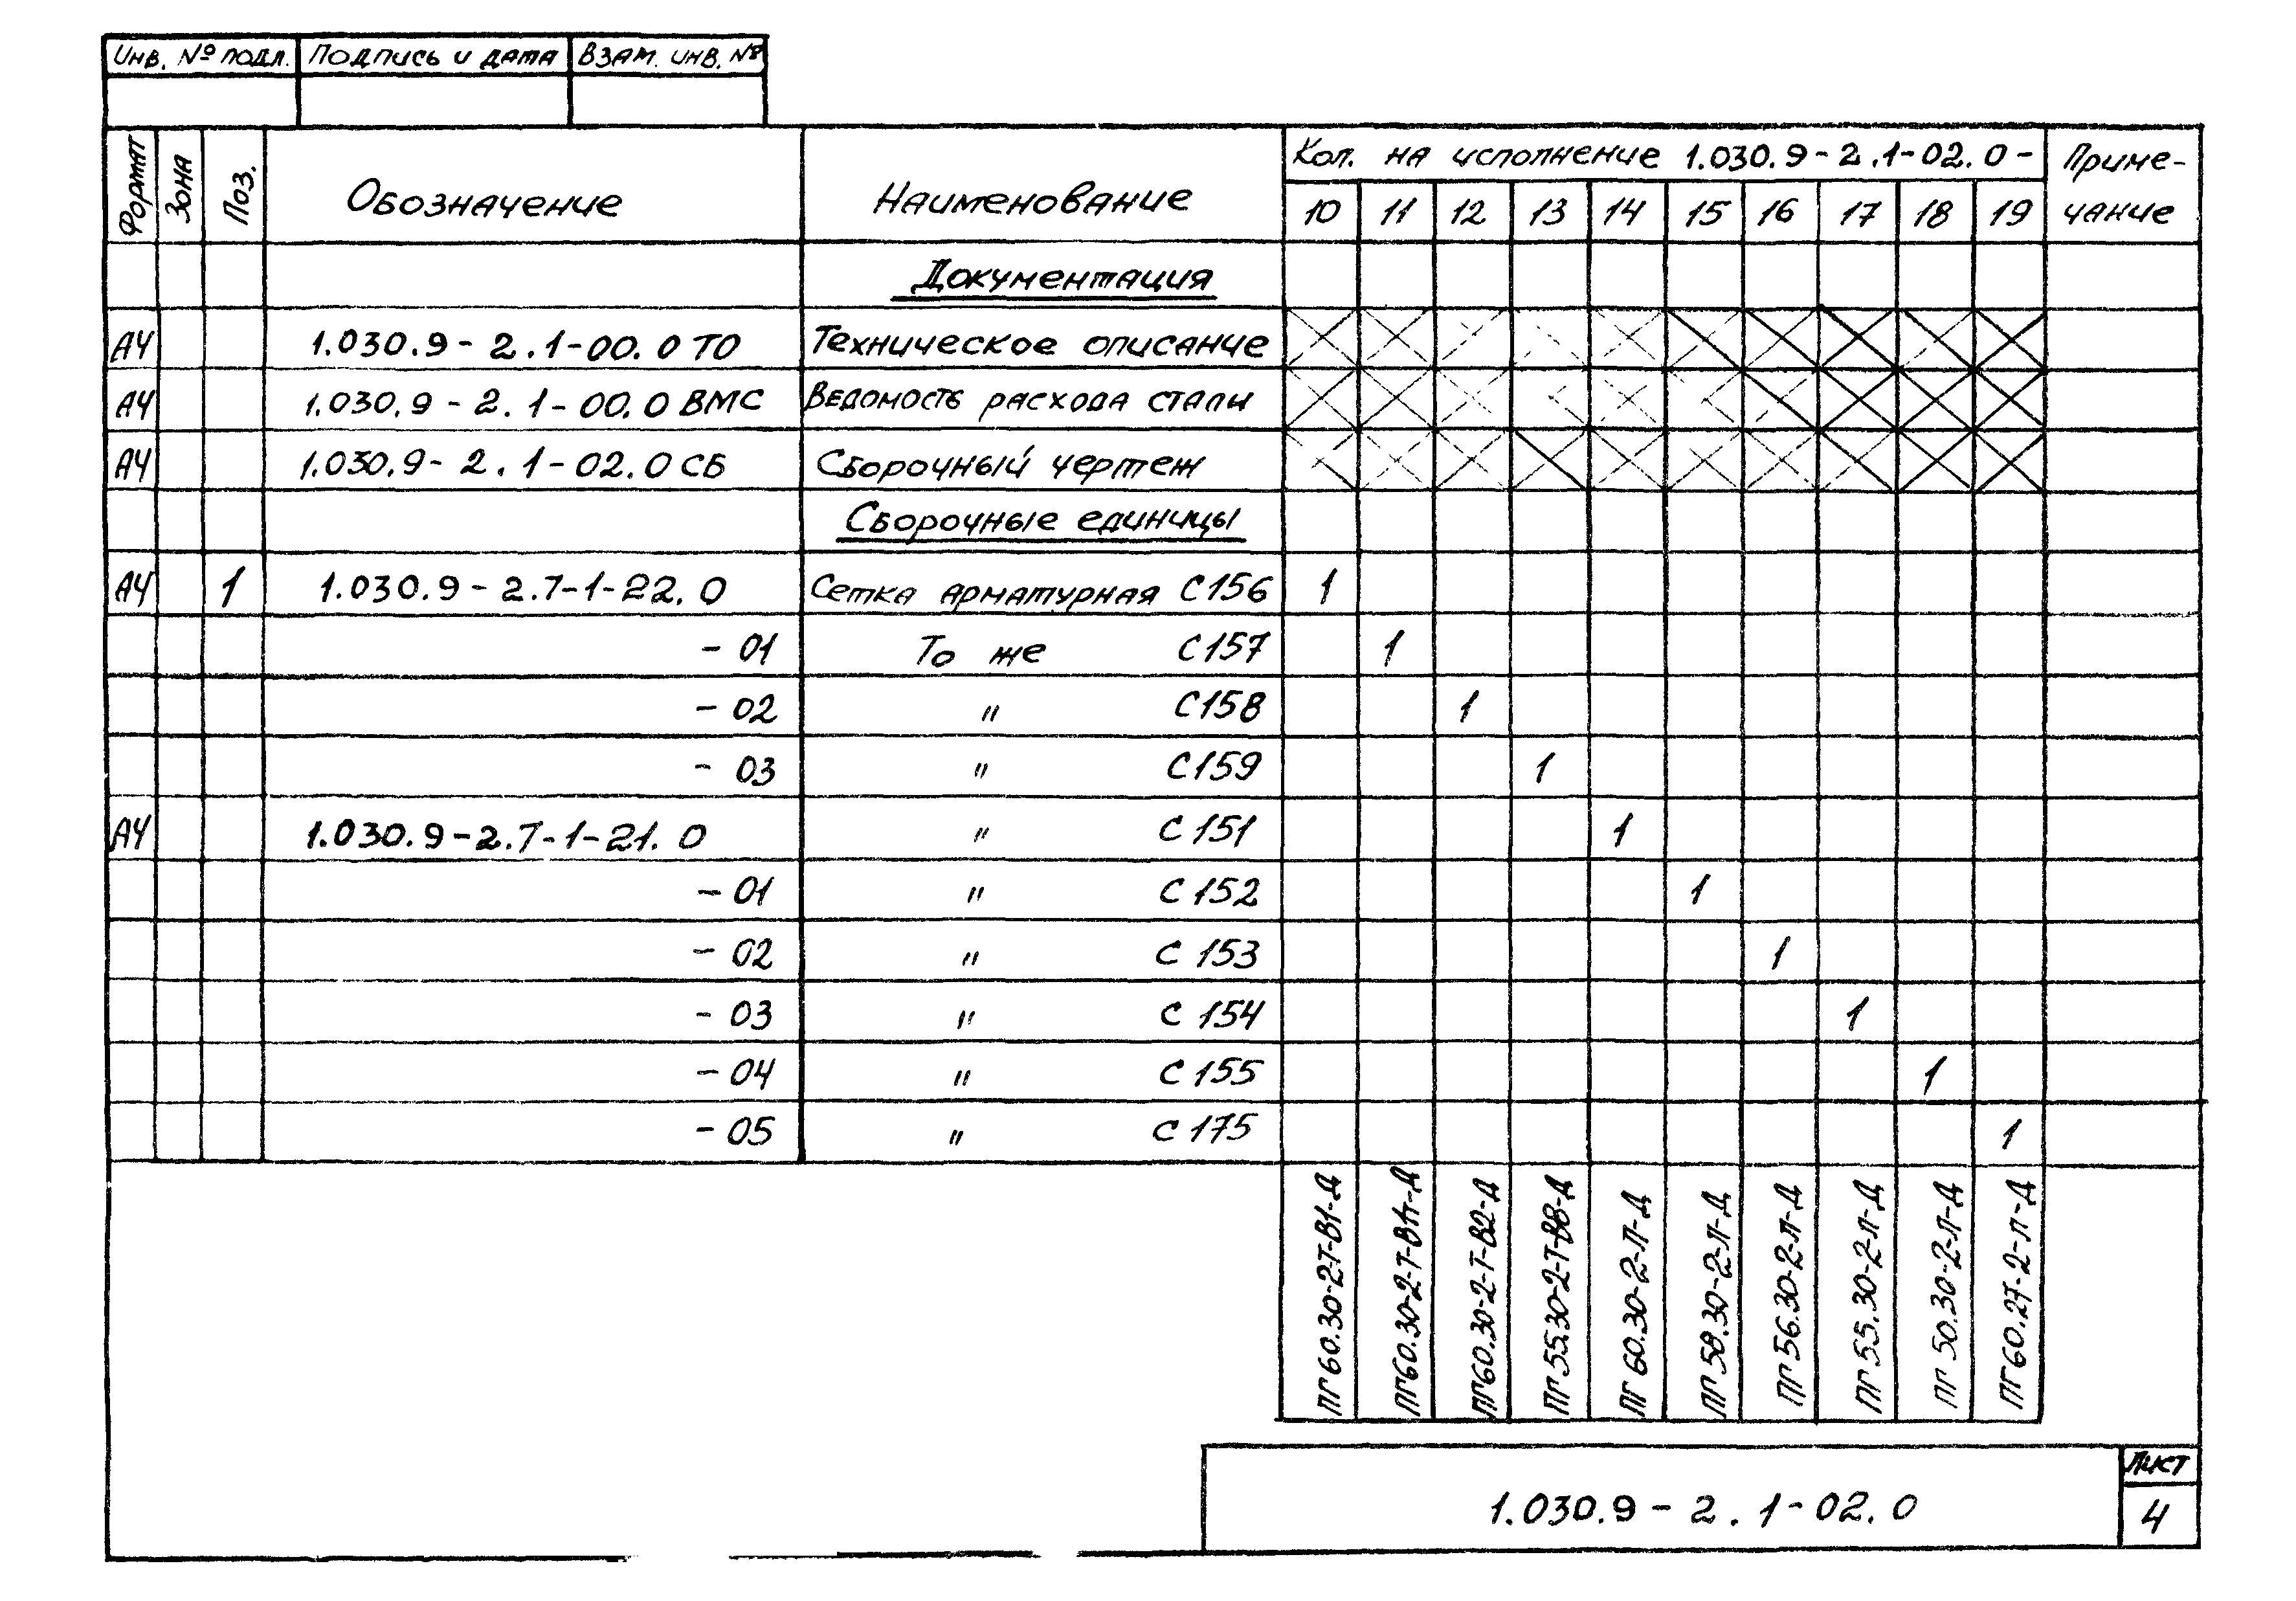 Инв. № подл. Подпись и дата Взам. инв. №
Формат Зона Поз. Обозначение Наименование Кол. на исполнение 1.030.9-2.1-02.0- Приме-
10 11 12 13 14 15 16 17 18 19 чание
Документация
А4 1.030.9-2.1-00.0 ТО Техническое описание
А4 1.030.9-2.1-00.0 ВМС Ведомость расхода стали
А4 1.030.9-2.1-02.0 СБ Сборочный чертеж
Сборочные единицы
А4 1 1.030.9-2.7-1-22.0 Сетка арматурная С156 1
-01 То же С157 1
-02 " С158 1
-03 " С159 1
А4 1.030.9-2.7-1-21.0 " С151 1
-01 " С152 1
-02 " С153 1
-03 " С154 1
-04 " С155 1
-05 " С175 1
ПГ60.30-2-Т-В1-Д
ПГ60.30-2-Т-В1п-Д
ПГ60.30-2-Т-В2-Д
ПГ55.30-2-Т-В8-Д
ПГ60.30-2-П-Д
ПГ58.30-2-П-Д
ПГ56.30-2-П-Д
ПГ55.30-2-П-Д
ПГ50.30-2-П-Д
ПГ60.27-2-П-Д
1.030.9-2.1-02.0
Лист
4